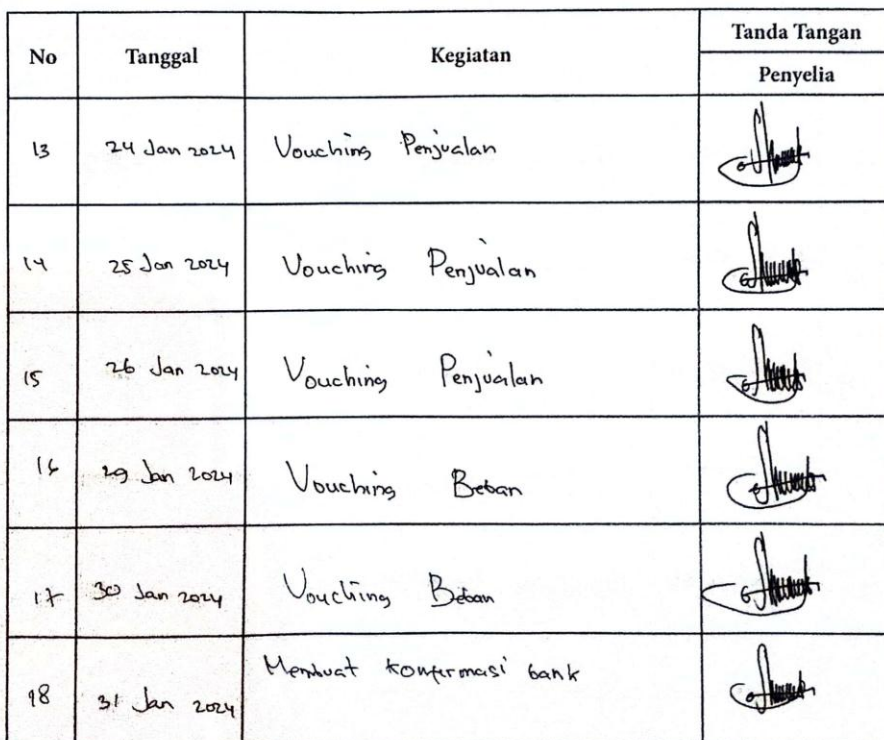 No Tanggal Kegiatan Tanda Tangan
Penyelia
13 24 Jan 2024 Vouching Penjualan
14 25 Jan 2024 Vouching Penjualan
15 26 Jan 2024 Vouching Penjualan
16 29 Jan 2024 Vouching Beban
17 30 Jan 2024 Vouching Beban
18 31 Jan 2024 Membuat konfirmasi bank